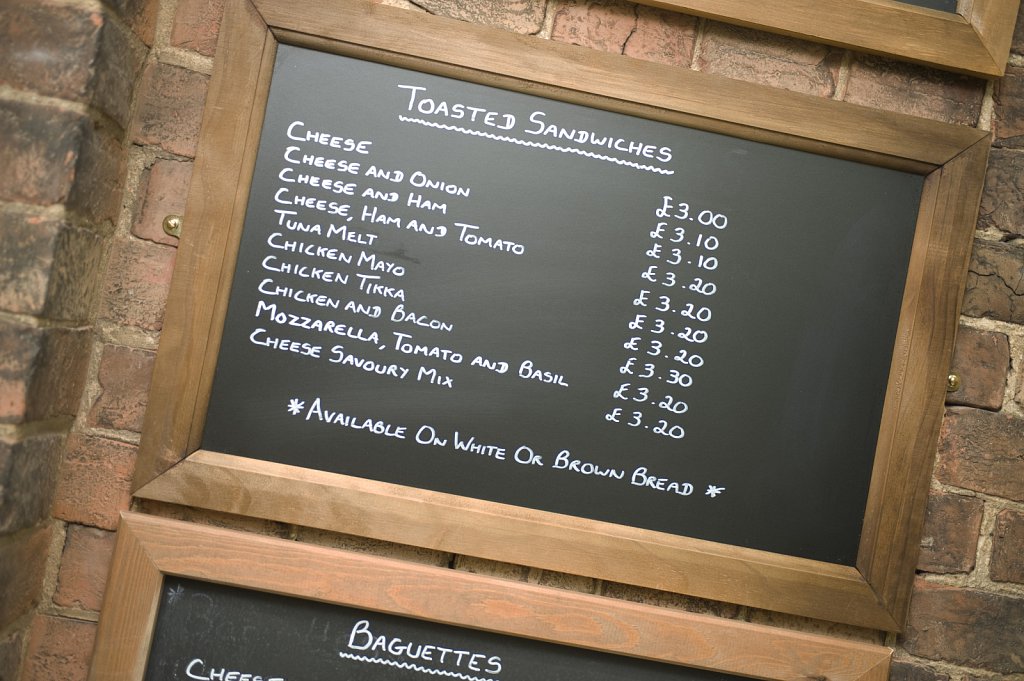 TOASTED SANDWICHES
CHEESE £3.00
CHEESE AND ONION £3.10
CHEESE AND HAM £3.10
CHEESE, HAM AND TOMATO £3.20
TUNA MELT £3.20
CHICKEN MAYO £3.20
CHICKEN TIKKA £3.20
CHICKEN AND BACON £3.30
MOZZARELLA, TOMATO AND BASIL £3.20
CHEESE SAVOURY MIX £3.20
*AVAILABLE ON WHITE OR BROWN BREAD *
BAGUETTES
CHEESE